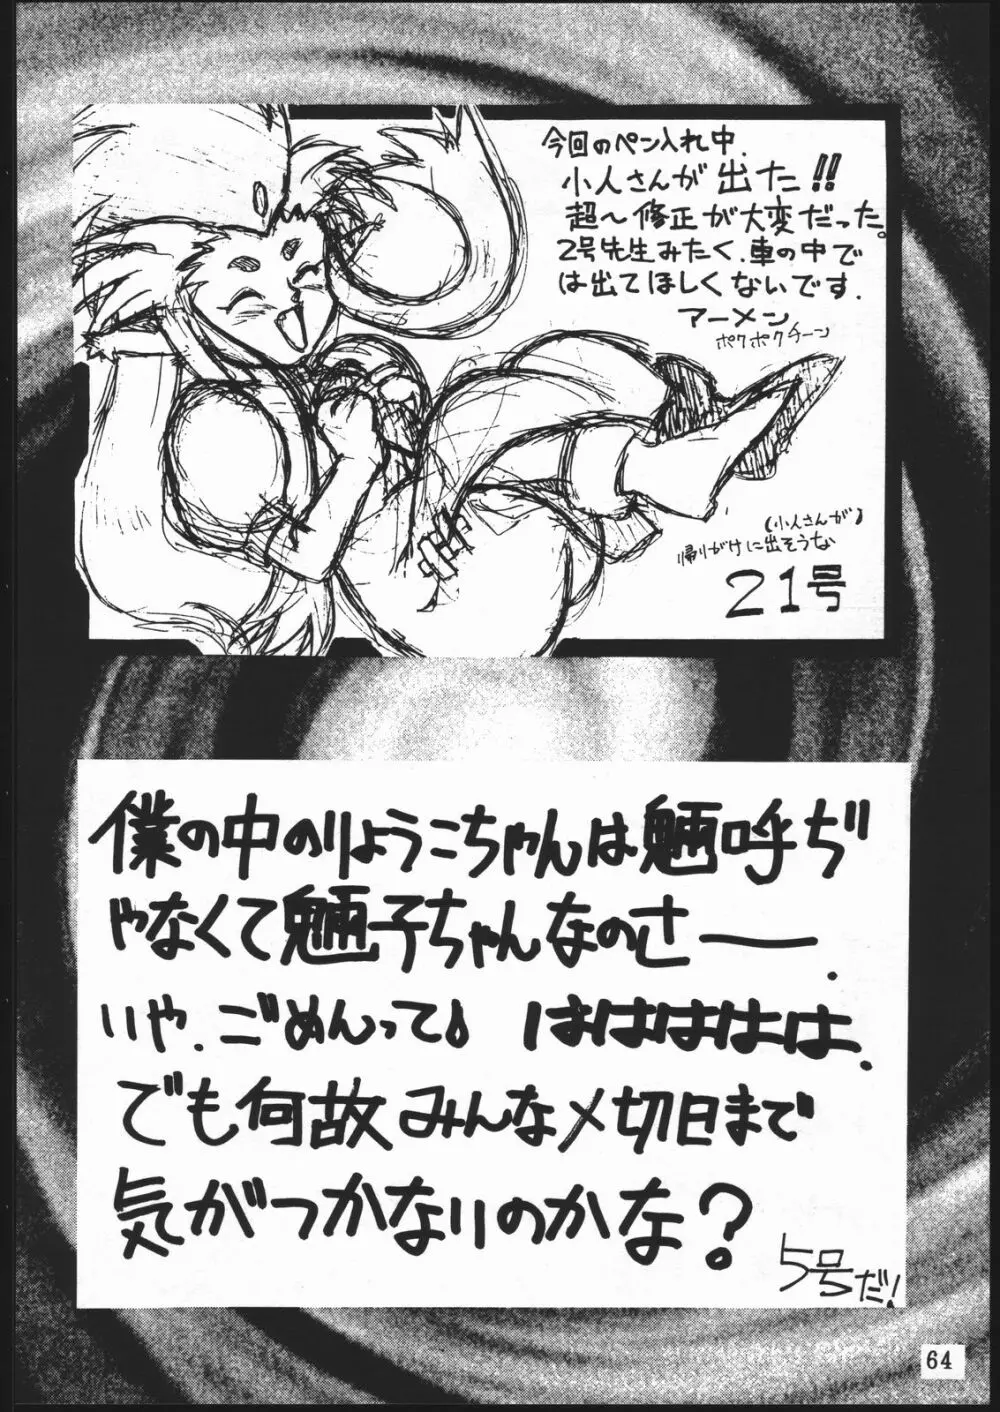 今回のペン入れ中、
小人さんが出た!!
超〜修正が大変だった。
2号先生みたく、車の中で
は出てほしくないです.
アーメン
ポクポクチーン
(小人さんが)
帰りがけに出そうな
21号
僕の中のりょうこちゃんは魎呼ぢ
ゃなくて魎子ちゃんなのさ——.
いや.ごめんって。 はははははは.
でも何故みんな〆切日まで
気がつかないのかな?
5号だ!
64